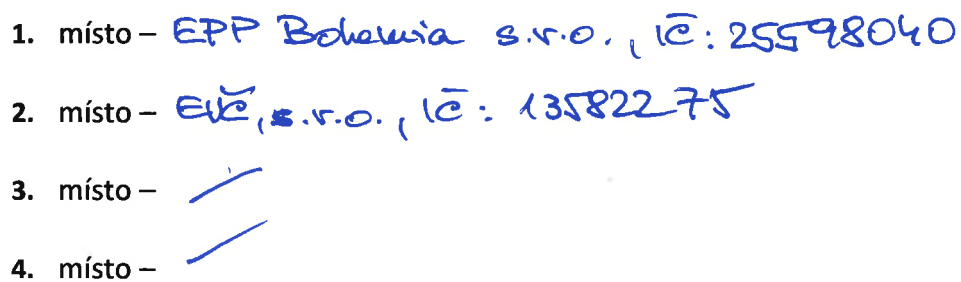 1. místo – EPP Bohemia s.r.o., IČ: 25598040
2. místo – EVČ, s.r.o., IČ: 13582275
3. místo –
4. místo –